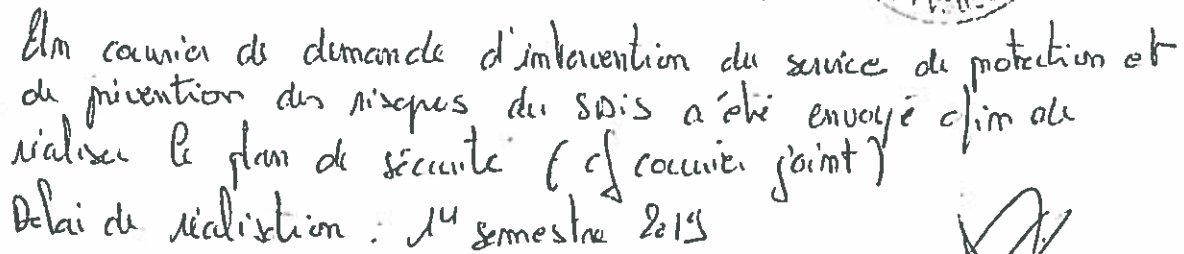 Un courrier de demande d'intervention du service de protection et
de prévention des risques du SDIS a été envoyé afin de
réaliser le plan de sécurité (cf courrier joint)
Délai de réalisation : 1er semestre 2019